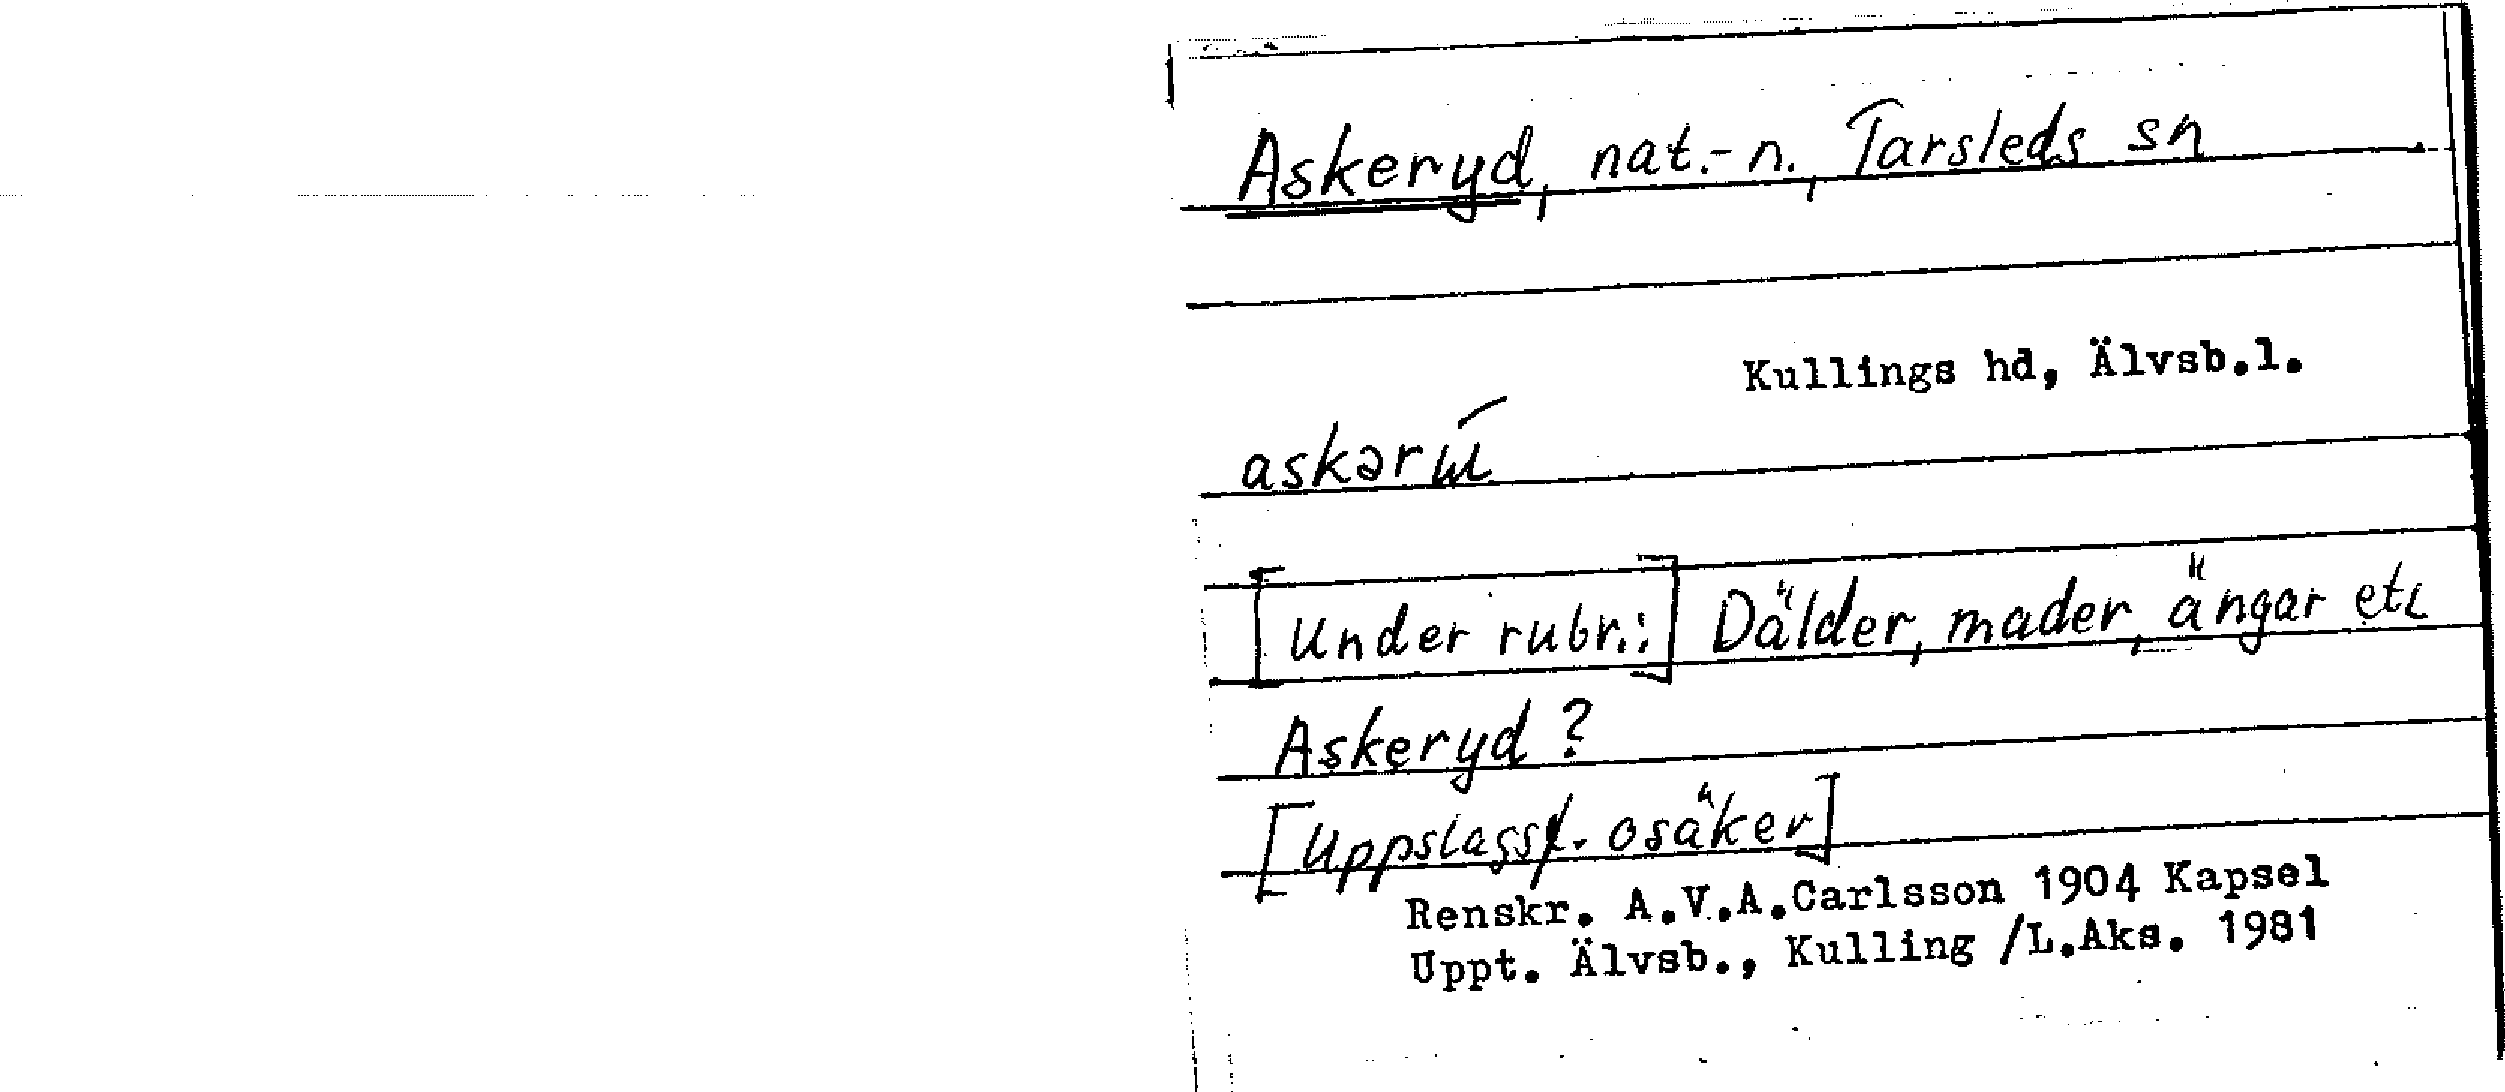 Askeryd, nat.-n., Tarsleds sn
Kullings hd, Älvsb.l.
[Under rubr.:] Dälder, mader, ängar etc
Askeryd?
[Uppslagsf. osäker]
Renskr. A.V.A.Carlsson 1904 Kapsel
Uppt. Älvsb., Kulling /L.Aks. 1981